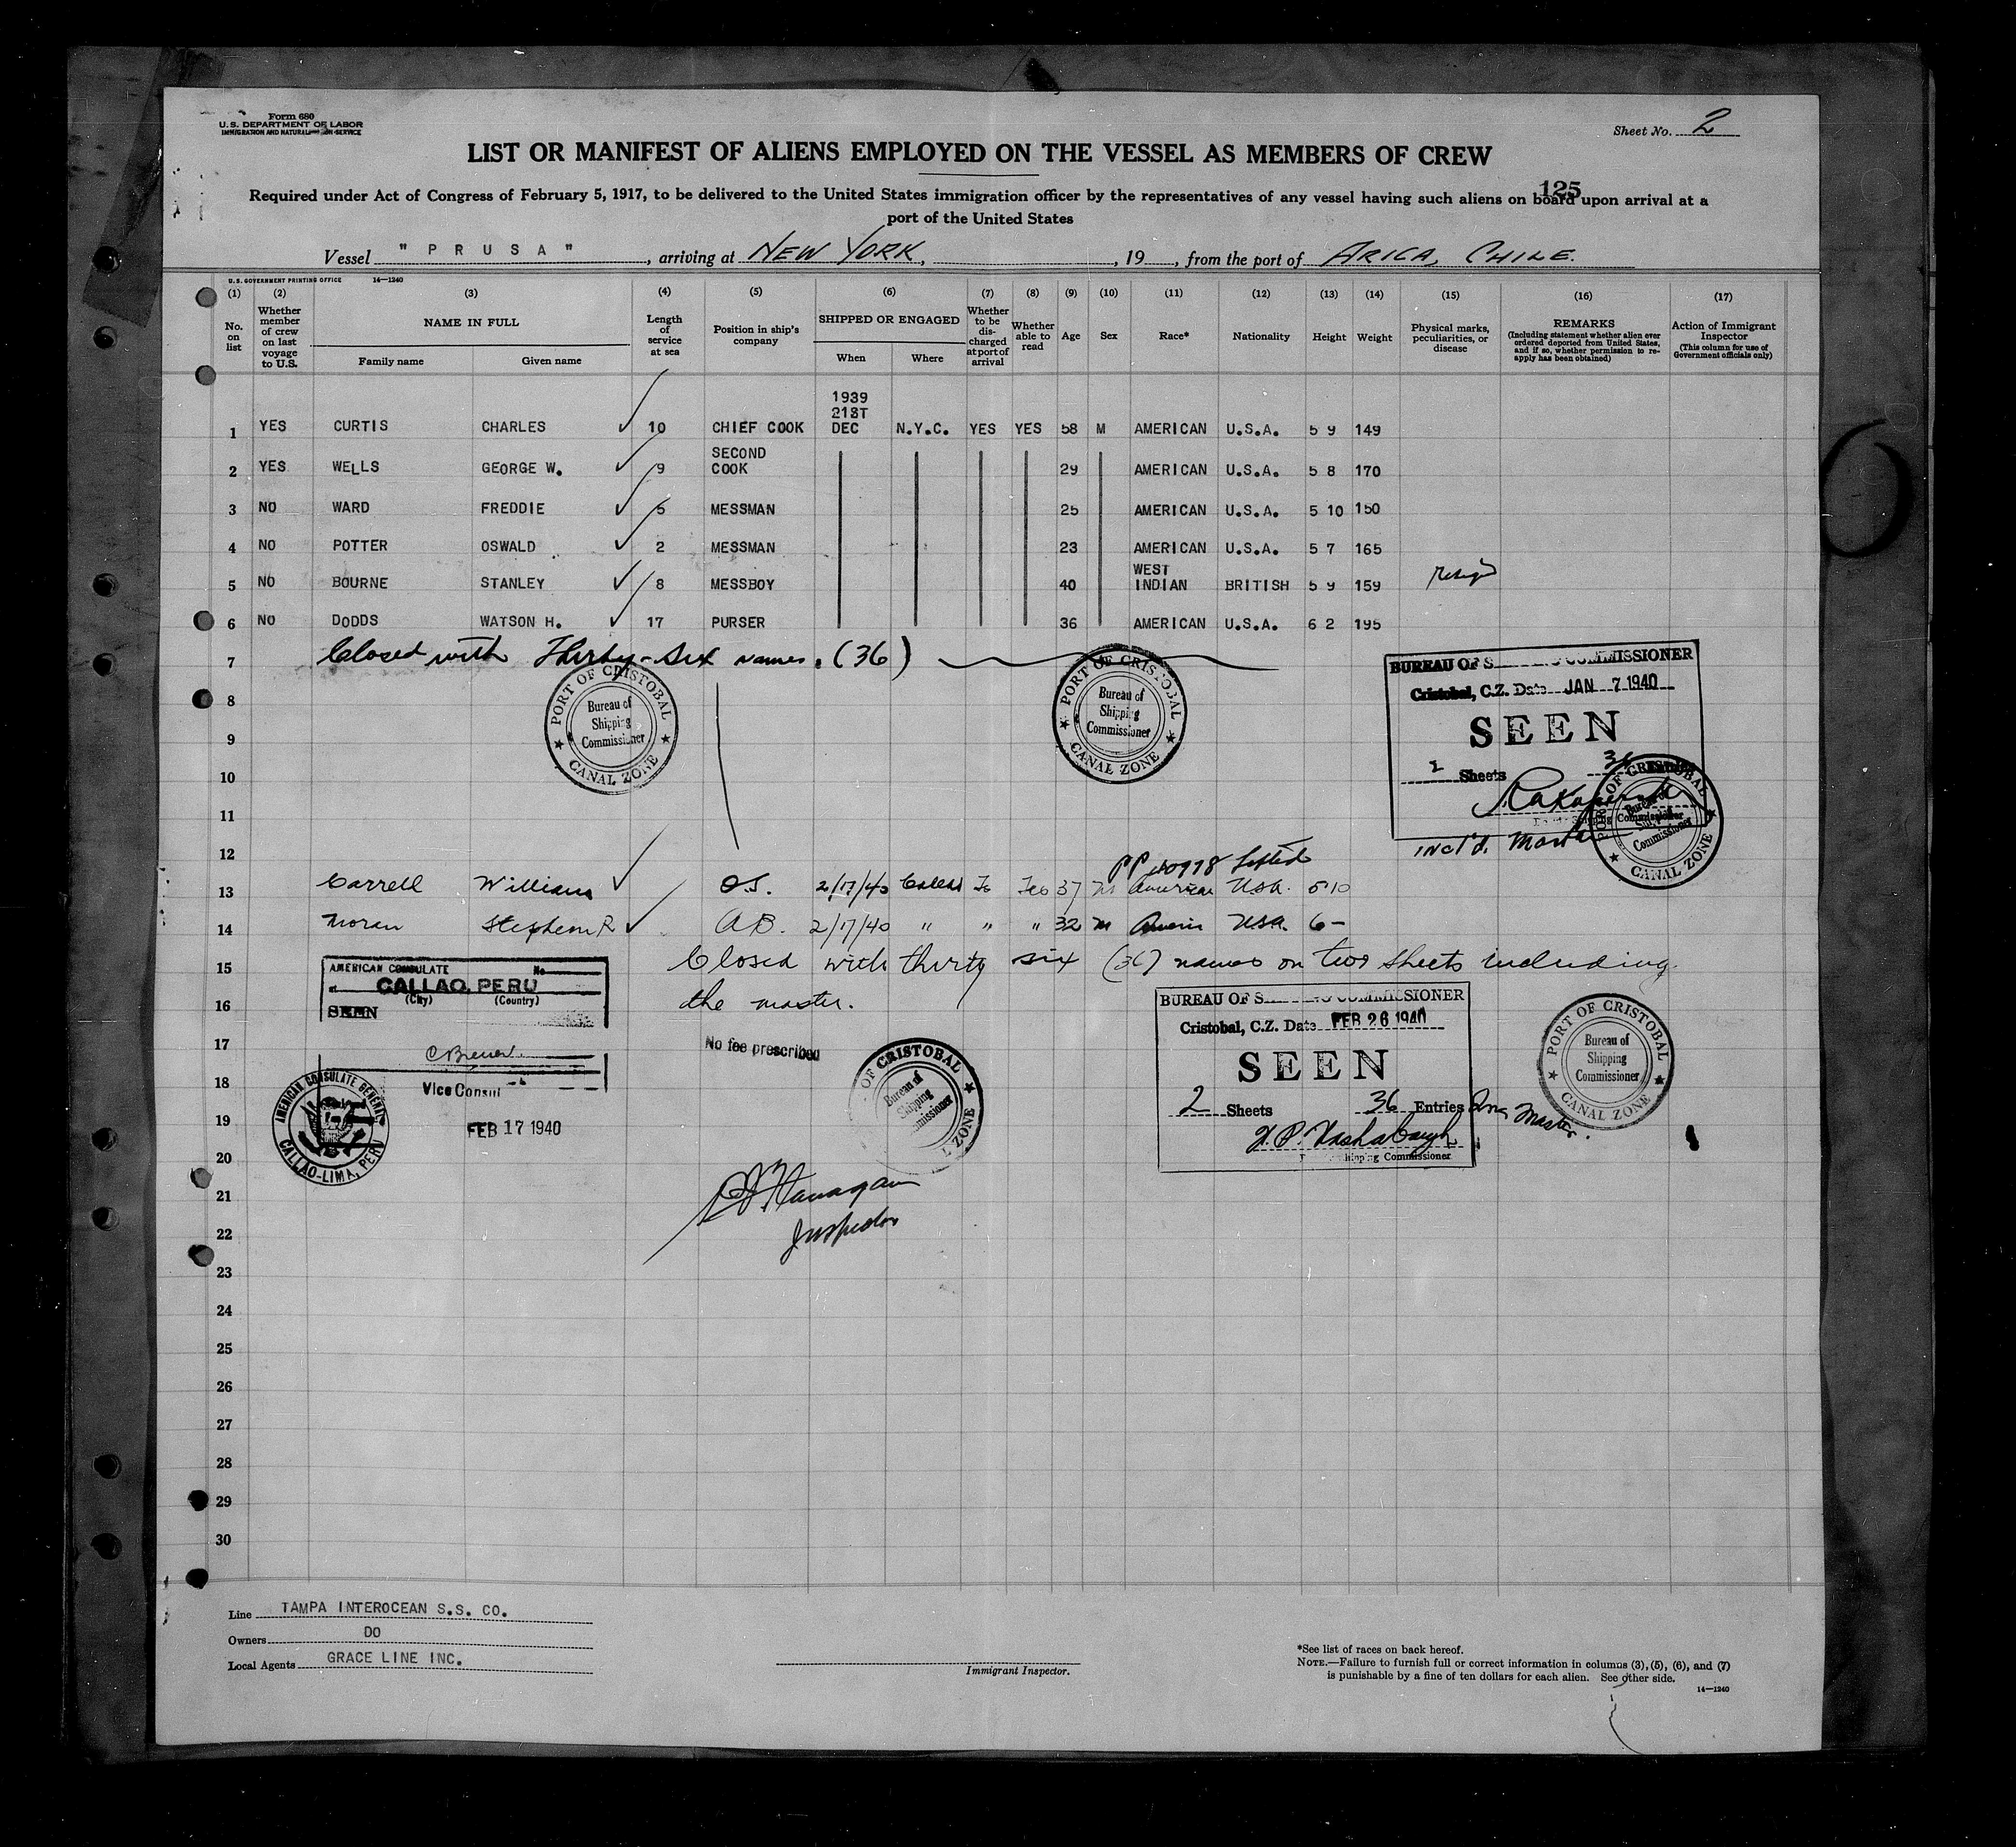 Form 680
U.S. DEPARTMENT OF LABOR
IMMIGRATION AND NATURALIZATION SERVICE
Sheet No. 2
LIST OR MANIFEST OF ALIENS EMPLOYED ON THE VESSEL AS MEMBERS OF CREW
125
Required under Act of Congress of February 5, 1917, to be delivered to the United States immigration officer by the representatives of any vessel having such aliens on board upon arrival at a
port of the United States
Vessel "PRUSA", arriving at NEW YORK, , 19 , from the port of ARICA, CHILE.
U.S. GOVERNMENT PRINTING OFFICE 14—1240
(1) (2) (3) (4) (5) (6) (7) (8) (9) (10) (11) (12) (13) (14) (15) (16) (17)
No. on list
Whether member of crew on last voyage to U.S.
NAME IN FULL
Family name
Given name
Length of service at sea
Position in ship's company
SHIPPED OR ENGAGED
When
Where
Whether to be discharged at port of arrival
Whether able to read
Age
Sex
Race*
Nationality
Height
Weight
Physical marks, peculiarities, or disease
REMARKS
(Including statement whether alien ever ordered deported from United States, and if so, whether permission to reapply has been obtained)
Action of Immigrant Inspector
(This column for use of Government officials only)
1 YES CURTIS CHARLES 10 CHIEF COOK 1939 21ST DEC N.Y.C. YES YES 58 M AMERICAN U.S.A. 5 9 149
2 YES WELLS GEORGE W. 9 SECOND COOK 29 AMERICAN U.S.A. 5 8 170
3 NO WARD FREDDIE 5 MESSMAN 25 AMERICAN U.S.A. 5 10 150
4 NO POTTER OSWALD 2 MESSMAN 23 AMERICAN U.S.A. 5 7 165
5 NO BOURNE STANLEY 8 MESSBOY 40 WEST INDIAN BRITISH 5 9 159
6 NO DODDS WATSON H. 17 PURSER 36 AMERICAN U.S.A. 6 2 195
7 Closed with Thirty-Six names. (36)
PORT OF CRISTOBAL
Bureau of Shipping Commissioner
CANAL ZONE
PORT OF CRISTOBAL
Bureau of Shipping Commissioner
CANAL ZONE
BUREAU OF S COMMISSIONER
Cristobal, C.Z. Date JAN 7 1940
SEEN
2 Sheets 36
Shipping Commissioner
incl'd. Master
PORT OF CRISTOBAL
Bureau of Shipping Commissioner
CANAL ZONE
8
9
10
11
12
PP lifted
13 Carrell William O.S. 2/17/40 Callao Yes 37 M American USA. 5 10
14 Moran Stephen R A.B. 2/17/40 " " " 32 M Americ USA. 6 -
15 Closed with thirty six (36) names on two sheets including
16 the master.
AMERICAN CONSULATE No
at CALLAO, PERU
(City) (Country)
SEEN
No fee prescribed
Vice Consul
FEB 17 1940
AMERICAN CONSULATE GENERAL
CALLAO-LIMA, PERU
OF CRISTOBAL
Bureau of Shipping Commissioner
ZONE
BUREAU OF S COMMISSIONER
Cristobal, C.Z. Date FEB 26 1940
SEEN
2 Sheets 36 Entries Inc Master.
Shipping Commissioner
PORT OF CRISTOBAL
Bureau of Shipping Commissioner
CANAL ZONE
Flanagan
Inspector
17
18
19
20
21
22
23
24
25
26
27
28
29
30
Line TAMPA INTEROCEAN S.S. CO.
Owners DO
Local Agents GRACE LINE INC.
Immigrant Inspector.
*See list of races on back hereof.
NOTE.—Failure to furnish full or correct information in columns (3), (5), (6), and (7)
is punishable by a fine of ten dollars for each alien. See other side.
14—1240